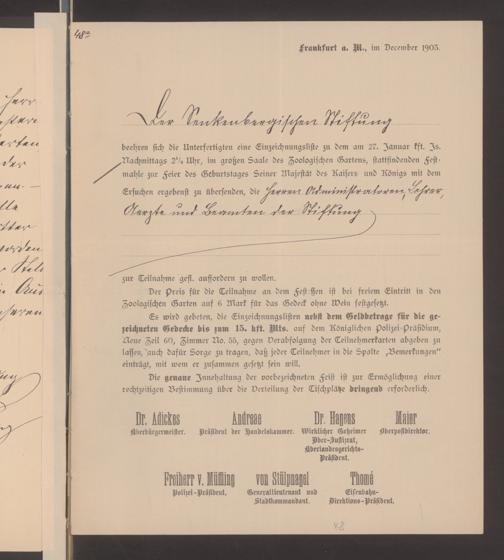 48a
Frankfurt a. M., im December 1905.
Der Senkenbergischen Stiftung
beehren sich die Unterfertigten eine Einzeichnungsliste zu dem am 27. Januar kft. Js.
Nachmittags 2¼ Uhr, im großen Saale des Zoologischen Gartens, stattfindenden Fest-
mahle zur Feier des Geburtstages Seiner Majestät des Kaisers und Königs mit dem
Ersuchen ergebenst zu übersenden, die Herren Administratoren, Lehrer,
Aerzte und Beamten der Stiftung
zur Teilnahme gefl. auffordern zu wollen.
Der Preis für die Teilnahme an dem Festessen ist bei freiem Eintritt in den
Zoologischen Garten auf 6 Mark für das Gedeck ohne Wein festgesetzt.
Es wird gebeten, die Einzeichnungslisten nebst dem Geldbetrage für die ge-
zeichneten Gedecke bis zum 15. kft. Mts. auf dem Königlichen Polizei-Präsidium,
Neue Zeil 60, Zimmer No. 55, gegen Verabfolgung der Teilnehmerkarten abgeben zu
lassen, auch dafür Sorge zu tragen, daß jeder Teilnehmer in die Spalte „Bemerkungen"
einträgt, mit wem er zusammen gesetzt sein will.
Die genaue Innehaltung der vorbezeichneten Frist ist zur Ermöglichung einer
rechtzeitigen Bestimmung über die Verteilung der Tischplätze dringend erforderlich.
Dr. Adickes Andreae Dr. Hagens Maier
Oberbürgermeister. Präsident der Handelskammer. Wirklicher Geheimer Oberpostdirektor.
Ober-Justizrat,
Oberlandesgerichts-
Präsident.
Freiherr v. Müffling von Stülpnagel Thomé
Polizei-Präsident. Generallieutenant und Eisenbahn-
Stadtkommandant. Direktions-Präsident.
48